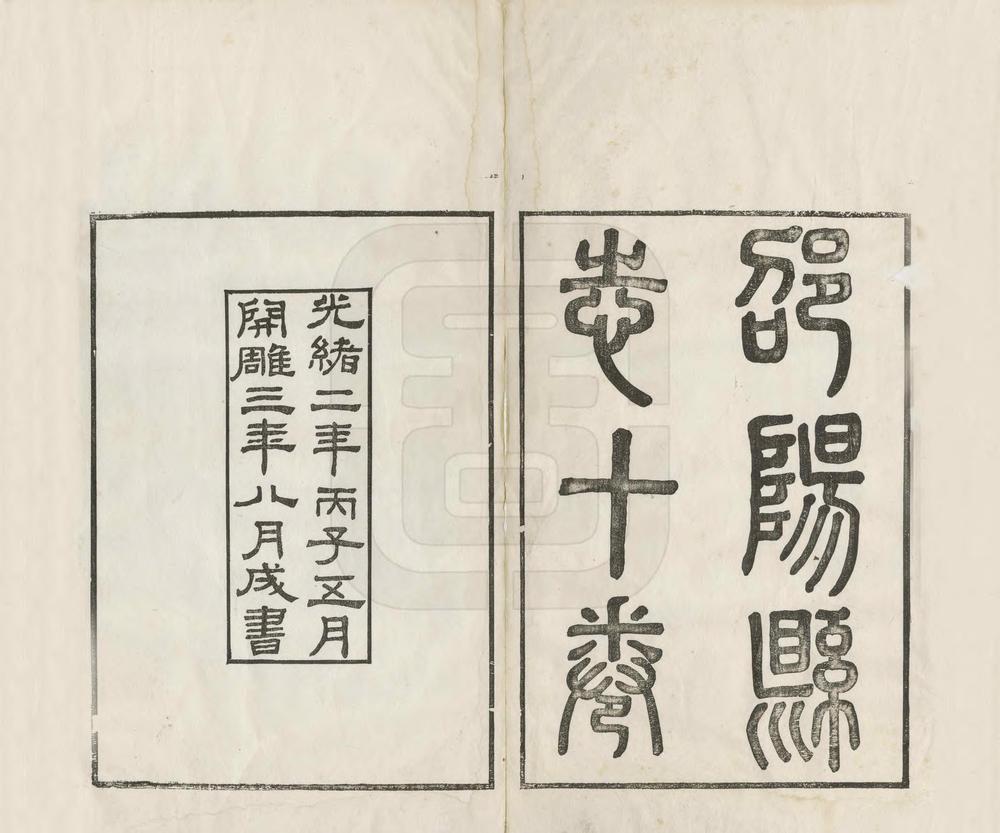 邵陽縣
志十卷
光緒二年丙子五月
開雕三年八月成書